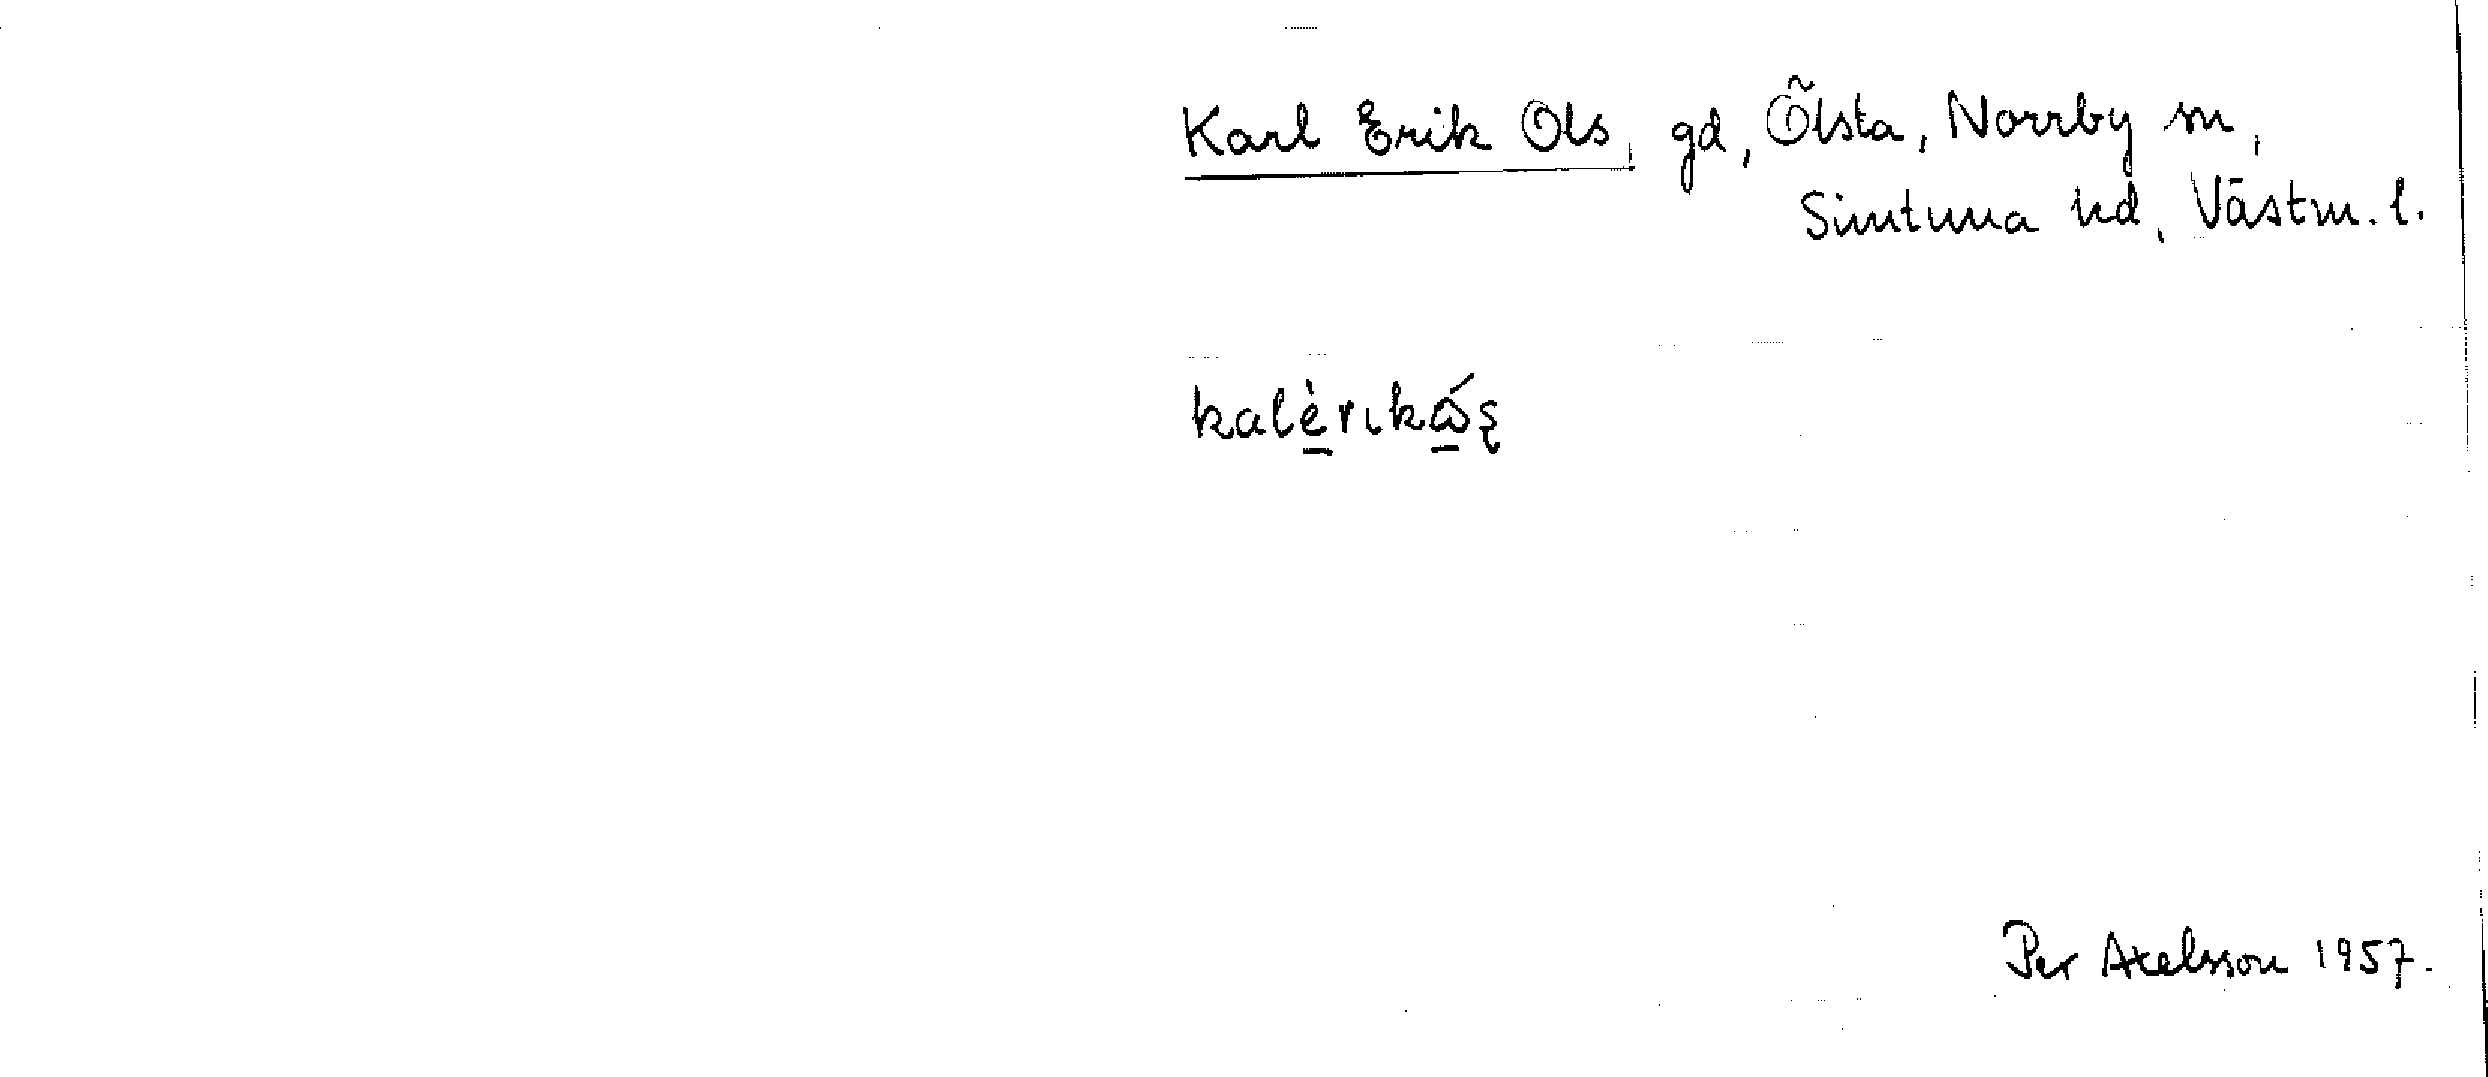 Karl Erik Ols, gd, Ölsta, Norrby sn,
Simtuna hd, Västm. l.
kalèrıkás
Per Axelsson 1957.